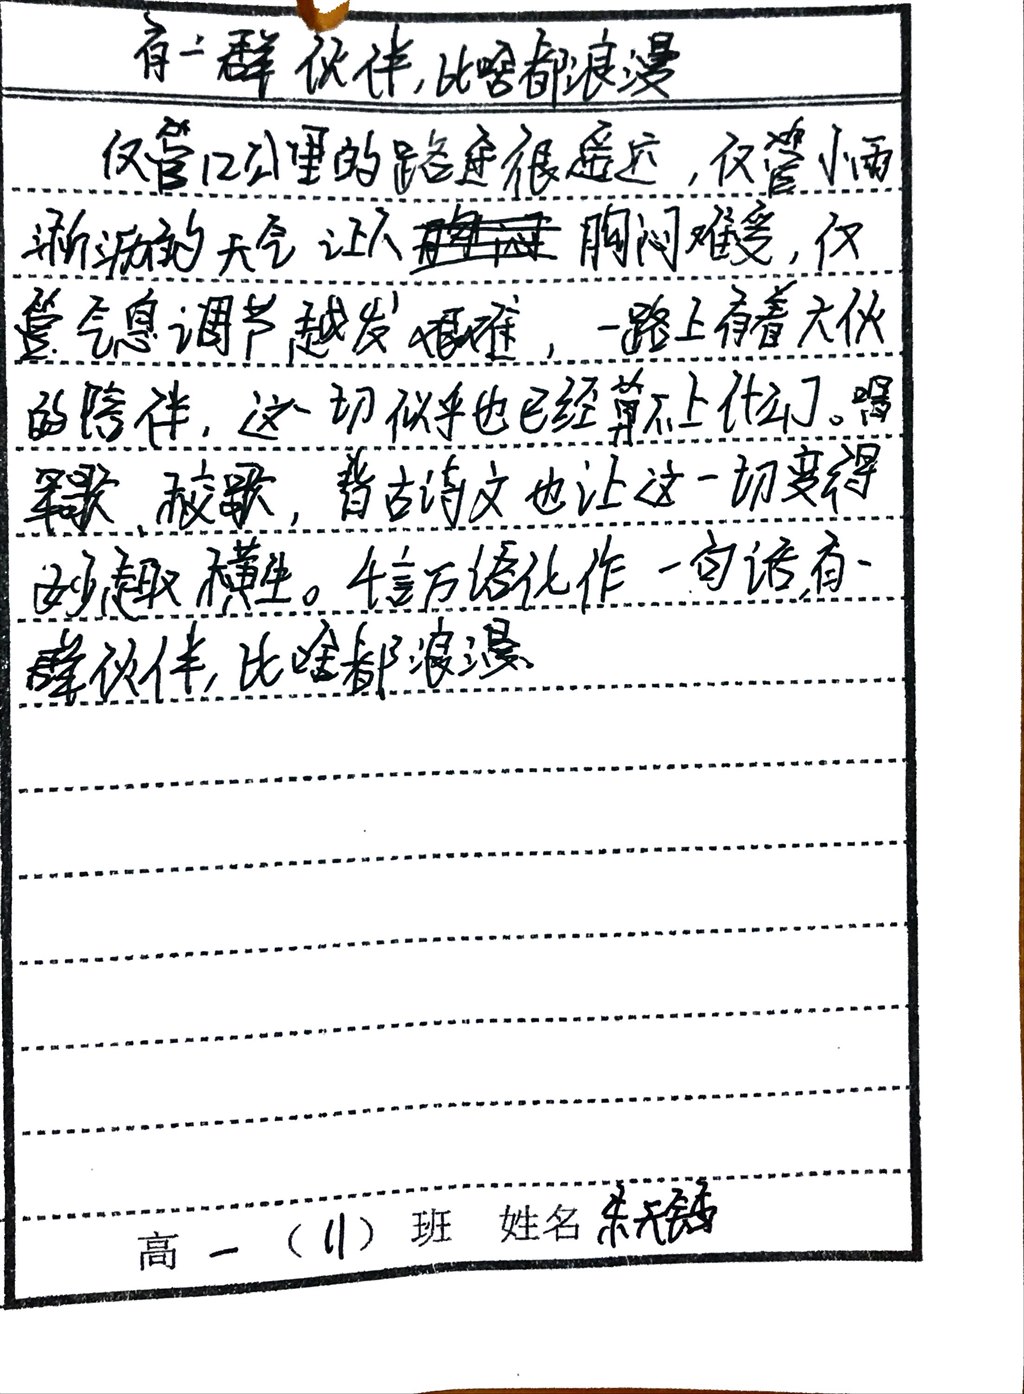 有一群伙伴,比啥都浪漫
仅管12公里的路途很遥远,仅管小雨
淅沥的天气让人胸闷难受,仅
管气息调节越发艰难,一路上有着大伙
的陪伴,这一切似乎也已经算不上什么了。唱
军歌、校歌,背古诗文也让这一切变得
妙趣横生。千言万语化作一句话,有一
群伙伴,比啥都浪漫。
高一(11)班 姓名